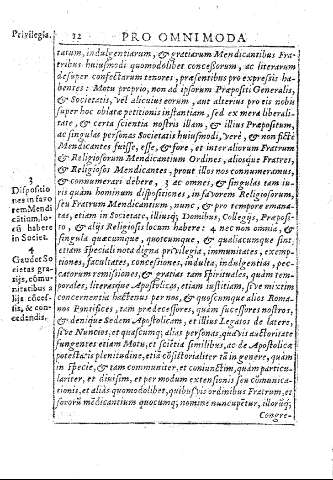 Privilegia. 12 PRO OMNIMODA
tatum, indulgentiarum, & gratiarum Mendicantibus Fra-
tribus huiusmodi quomodolibet concessorum, ac literarum
desuper confectarum tenores, præsentibus pro expressis ha-
bentes: Motu proprio, non ad ipsorum Præpositi Generalis,
& Societatis, vel alicuius eorum, aut alterius pro eis nobis
super hoc oblatæ petitionis instantiam, sed ex mera liberali-
tate, & certa scientia nostris illum, & illius Præpositum,
ac singulas personas Societatis huiusmodi, verè, & non fictè
Mendicantes fuisse, esse, & fore, et inter aliorum Fratrum
& Religiosorum Mendicantium Ordines, aliosque Fratres,
& Religiosos Mendicantes, prout illos nos connumeramus,
& connumerari debere, 3 ac omnes, & singulas tam iu-
ris quàm hominum dispositiones, in favorem Religiosorum,
seu Fratrum Mendicantium, nunc, & pro tempore emana-
tas, etiam in Societate, illiusq; Domibus, Collegijs, Præposi-
to, & alijs Religiosis locum habere: 4 nec non omnia, &
singula quæcumque, quotcumque, & qualiacumque sint,
etiam speciali nota digna privilegia, immunitates, exemp-
tiones, facultates, concessiones, indulta, indulgentias, pec-
catorum remissiones, & gratias tam spirituales, quàm tem-
porales, literasque Apostolicas, etiam iustitiam, sive mixtim
concernentia hactenus per nos, & quoscumque alios Roma-
nos Pontifices, tam prædecessores, quàm successores nostros,
& denique Sedem Apostolicam, et illius Legatos de latere,
sive Nuncios, et quascumq; alias personas, quavis auctoritate
fungentes etiam Motu, et scientia similibus, ac de Apostolicæ
potestatis plenitudine, etiã cõsistorialiter tã in genere, quàm
in specie, & tam communiter, et coniunctim, quàm particu-
lariter, et divisim, et per modum extensionis seu cõmunica-
tionis, et aliàs quomodolibet, quibusvis ordinibus Fratrum, et
sororũ mẽdicantium quocumq; nomine nuncupẽtur, illorũq;
Congre-
3
Dispositio
nes in favo
rem Mendi
cãtium, lo-
cũ habere
in Societ.
4
Gaudet So
cietas gra-
tijs, cõmu-
nitatibus a
lijs cõces-
sis, & con-
cedendis.